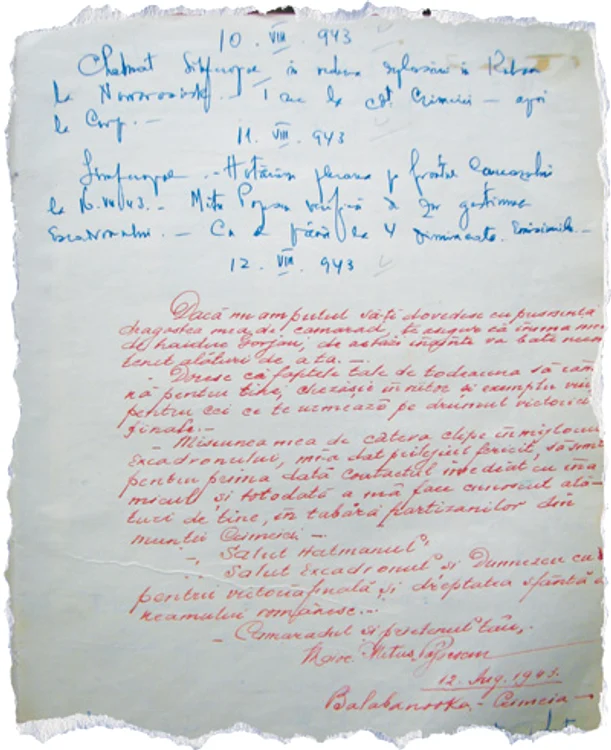 10. VIII. 943
Chemat Simferopol în vederea
la Noworosisk. – la cdt. Crimeii – apoi
la Corp. –
11. VIII. 943
Simferopol. – Hotărîrea plecarea pe frontul Caucazului
la 16.VIII.43. – Mitu verifică gestiunea
Escadronului. – Ca pană la 4 dimineața.
12. VIII. 943
Dacă nu am putut să-ți dovedesc cu prisosință
dragostea mea de camarad, te asigur că inima mea
de haiduc Gorjan, de astăzi înainte va bate
alături de a ta. –
– Doresc că faptele tale de todeauna să
pentru tine, chezășie în viitor și exemplu viu
pentru cei ce te urmează pe drumul victoriei
finale. –
– Misiunea mea de câteva clipe în mijlocul
Escadronului, mi-a dat prilejul fericit, să
pentru prima dată contactul imediat cu ina-
micul, și totodată a mă face cunoscut ală-
turi de tine, în tabăra partizanilor din
munții Crimeii –
– Salut Hatmanul,
Salut Escadronul și Dumnezeu cu
pentru victoria finală și dreptatea sfântă a
neamului românesc. –
– Camaradul și prietenul tău,
Mitus
12. Aug. 1943.
Balabanovka – Crimeia –